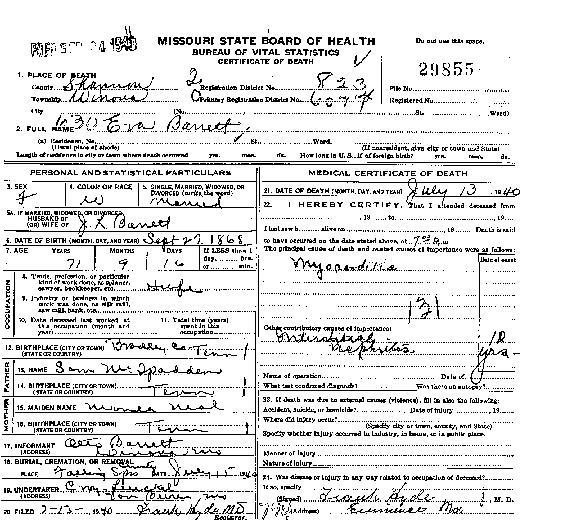 SEP 24 1940
MISSOURI STATE BOARD OF HEALTH
BUREAU OF VITAL STATISTICS
CERTIFICATE OF DEATH
Do not use this space.
29855
1. PLACE OF DEATH
County Shannon Registration District No. 823 File No.
Township Winona Primary Registration District No. Registered No.
City (No. St. Ward)
2. FULL NAME Eva Barrett
(a) Residence, No. St. Ward.
(Usual place of abode) (If nonresident, give city or town and State)
Length of residence in city or town where death occurred yrs. mos. ds. How long in U.S., if of foreign birth? yrs. mos. ds.
PERSONAL AND STATISTICAL PARTICULARS
3. SEX F
4. COLOR OR RACE W
5. SINGLE, MARRIED, WIDOWED, OR DIVORCED (write the word) Married
5A. IF MARRIED, WIDOWED, OR DIVORCED
HUSBAND OF
(OR) WIFE OF J. L. Barrett
6. DATE OF BIRTH (MONTH, DAY, AND YEAR) Sept 27, 1868
7. AGE YEARS MONTHS DAYS If LESS than 1 day, hrs. or min.
71 9 16
OCCUPATION
8. Trade, profession, or particular kind of work done, as spinner, sawyer, bookkeeper, etc.
9. Industry or business in which work was done, as silk mill, saw mill, bank, etc.
10. Date deceased last worked at this occupation (month and year)
11. Total time (years) spent in this occupation
12. BIRTHPLACE (CITY OR TOWN) Tenn
(STATE OR COUNTRY)
FATHER
13. NAME Sam McSpadden
14. BIRTHPLACE (CITY OR TOWN) Tenn
(STATE OR COUNTRY)
MOTHER
15. MAIDEN NAME Neal
16. BIRTHPLACE (CITY OR TOWN) Tenn
(STATE OR COUNTRY)
17. INFORMANT Barrett
(ADDRESS) Winona Mo
18. BURIAL, CREMATION, OR REMOVAL
PLACE DATE July 15 1940
19. UNDERTAKER
(ADDRESS) Van Buren, Mo
20. FILED 1940 Frank Hyde MD
MEDICAL CERTIFICATE OF DEATH
21. DATE OF DEATH (MONTH, DAY, AND YEAR) July 13, 1940
22. I HEREBY CERTIFY, That I attended deceased from
, 19 , to , 19
I last saw h alive on , 19 Death is said
to have occurred on the date stated above, at m.
The principal cause of death and related causes of importance were as follows:
Date of onset
Myocarditis
Other contributory causes of importance:
Interstitial Nephritis 10 yrs
Name of operation Date of
What test confirmed diagnosis? Was there an autopsy?
23. If death was due to external causes (violence), fill in also the following:
Accident, suicide, or homicide? Date of injury , 19
Where did injury occur?
(Specify city or town, county, and State)
Specify whether injury occurred in industry, in home, or in public place.
Manner of injury
Nature of injury
24. Was disease or injury in any way related to occupation of deceased?
If so, specify
(Signed) Frank Hyde, M. D.
(Address) Eminence Mo